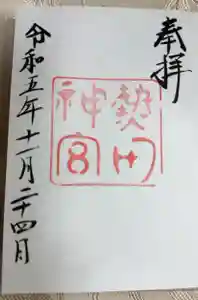 奉拝
熱田
神宮
令和五年十一月二十四日